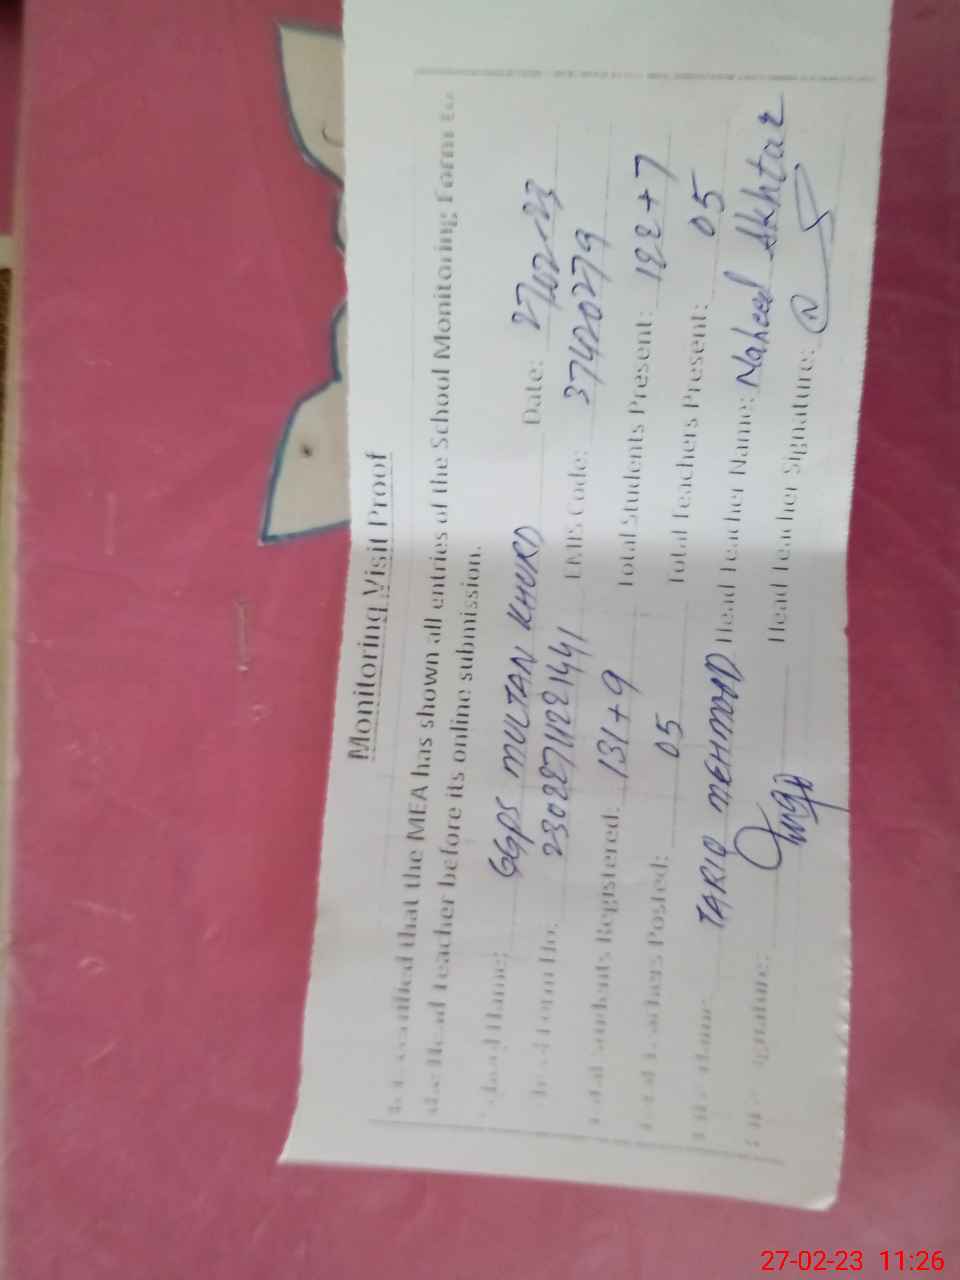 Monitoring Visit Proof
that the MEA has shown all entries of the School Monitoring Form to
the Head Teacher before its online submission.
School Name: GGPS MULTAN KHURD Date: 27-02-23
Form No: EMIS Code: 37420279
Total Students Registered: 131+9 Total Students Present: 122+7
Total Teachers Posted: 05 Total Teachers Present: 05
Name: TARIQ MEHMOOD Head Teacher Name: Naheed Akhtar
Signature: Head Teacher Signature:
27-02-23 11:26